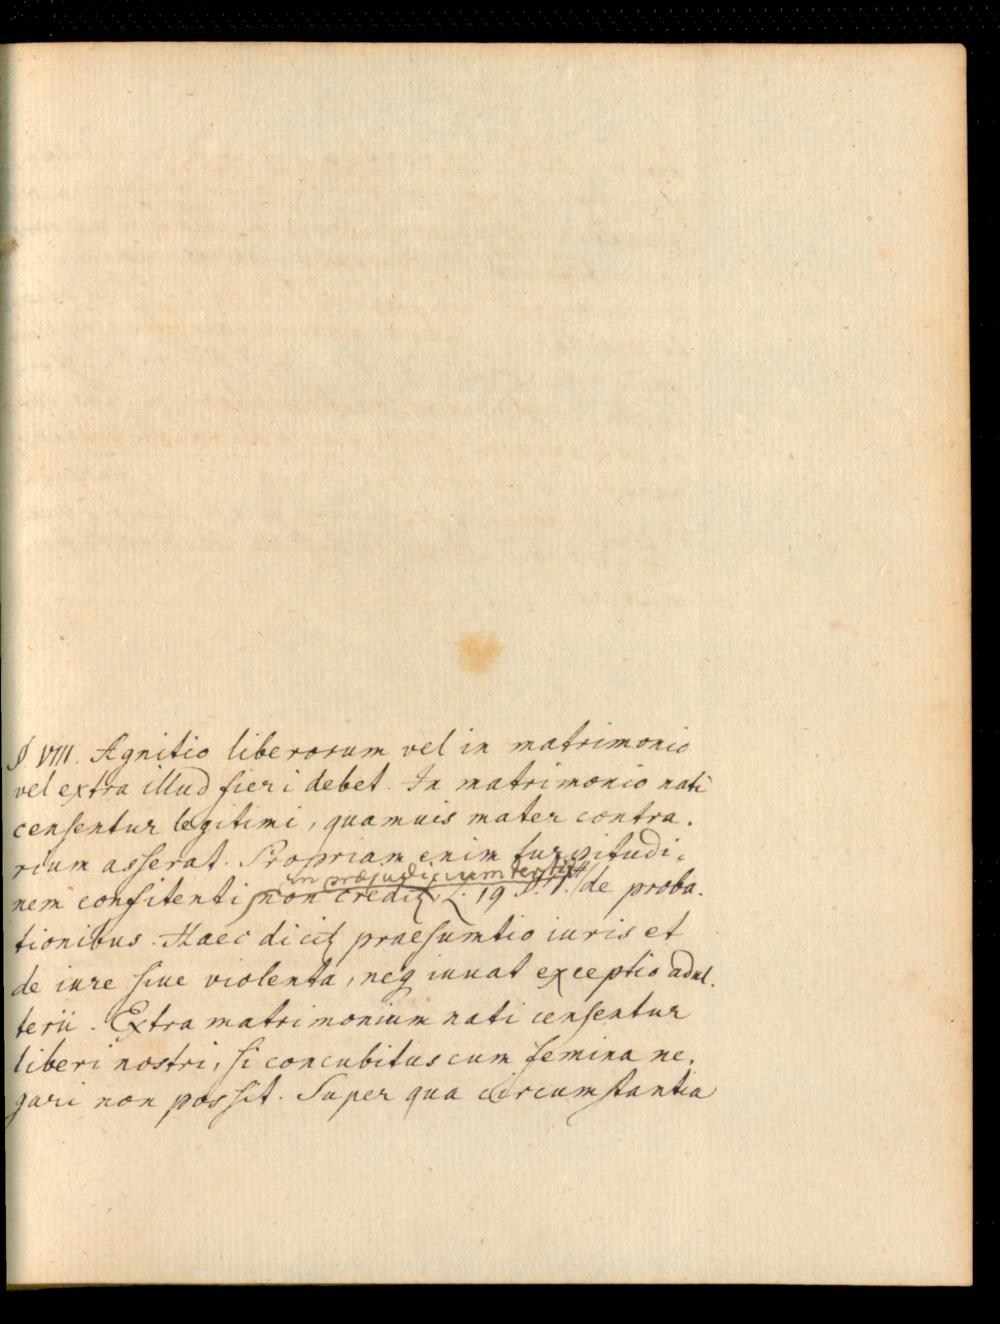 §. VIII. Agnitio liberorum vel in matrimonio
vel extra illud fieri debet. In matrimonio nati
censentur legitimi, quamuis mater contra.
rium asserat. Propriam enim turpitudi.
in praejudicium tertii
nem confitenti non credit L. 19 de proba.
tionibus. Haec dicit praesumtio iuris et
de iure siue violenta, neq iuuat exceptio adul.
terii. Extra matrimonium nati censentur
liberi nostri, si concubitus cum femina ne.
gari non possit. Super qua circumstantia